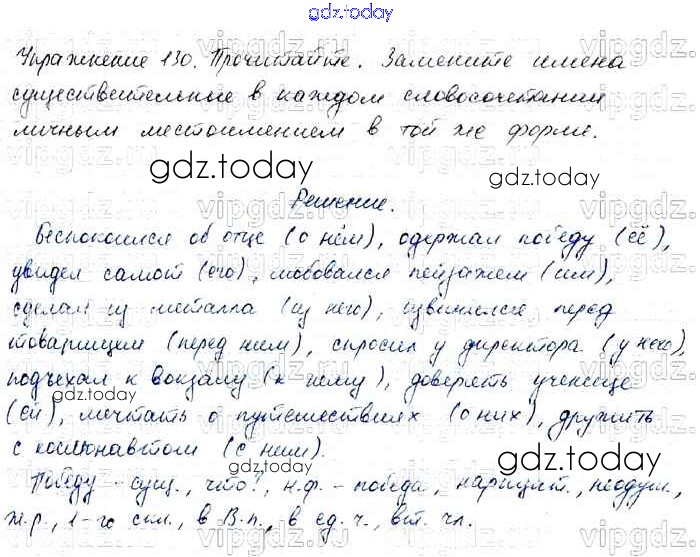 gdz.today
Упражнение 130. Прочитайте. Замените имена
существительные в каждом словосочетании
личным местоимением в той же форме.
gdz.today
gdz.today
Решение.
Беспокоился об отце (о нём), одержал победу (её),
увидел самолёт (его), любовался пейзажем (им),
сделан из металла (из него), извинился перед
товарищем (перед ним), спросил у директора (у него),
подъехал к вокзалу (к нему), доверять ученице
(ей), мечтать о путешествиях (о них), дружить
gdz.today
gdz.today
с космонавтом (с ним).
gdz.today
Победу – сущ., что?, н.ф. – победа, нарицат., неодуш.,
ж.р., 1-го скл., в В.п., в ед.ч., вт. чл.